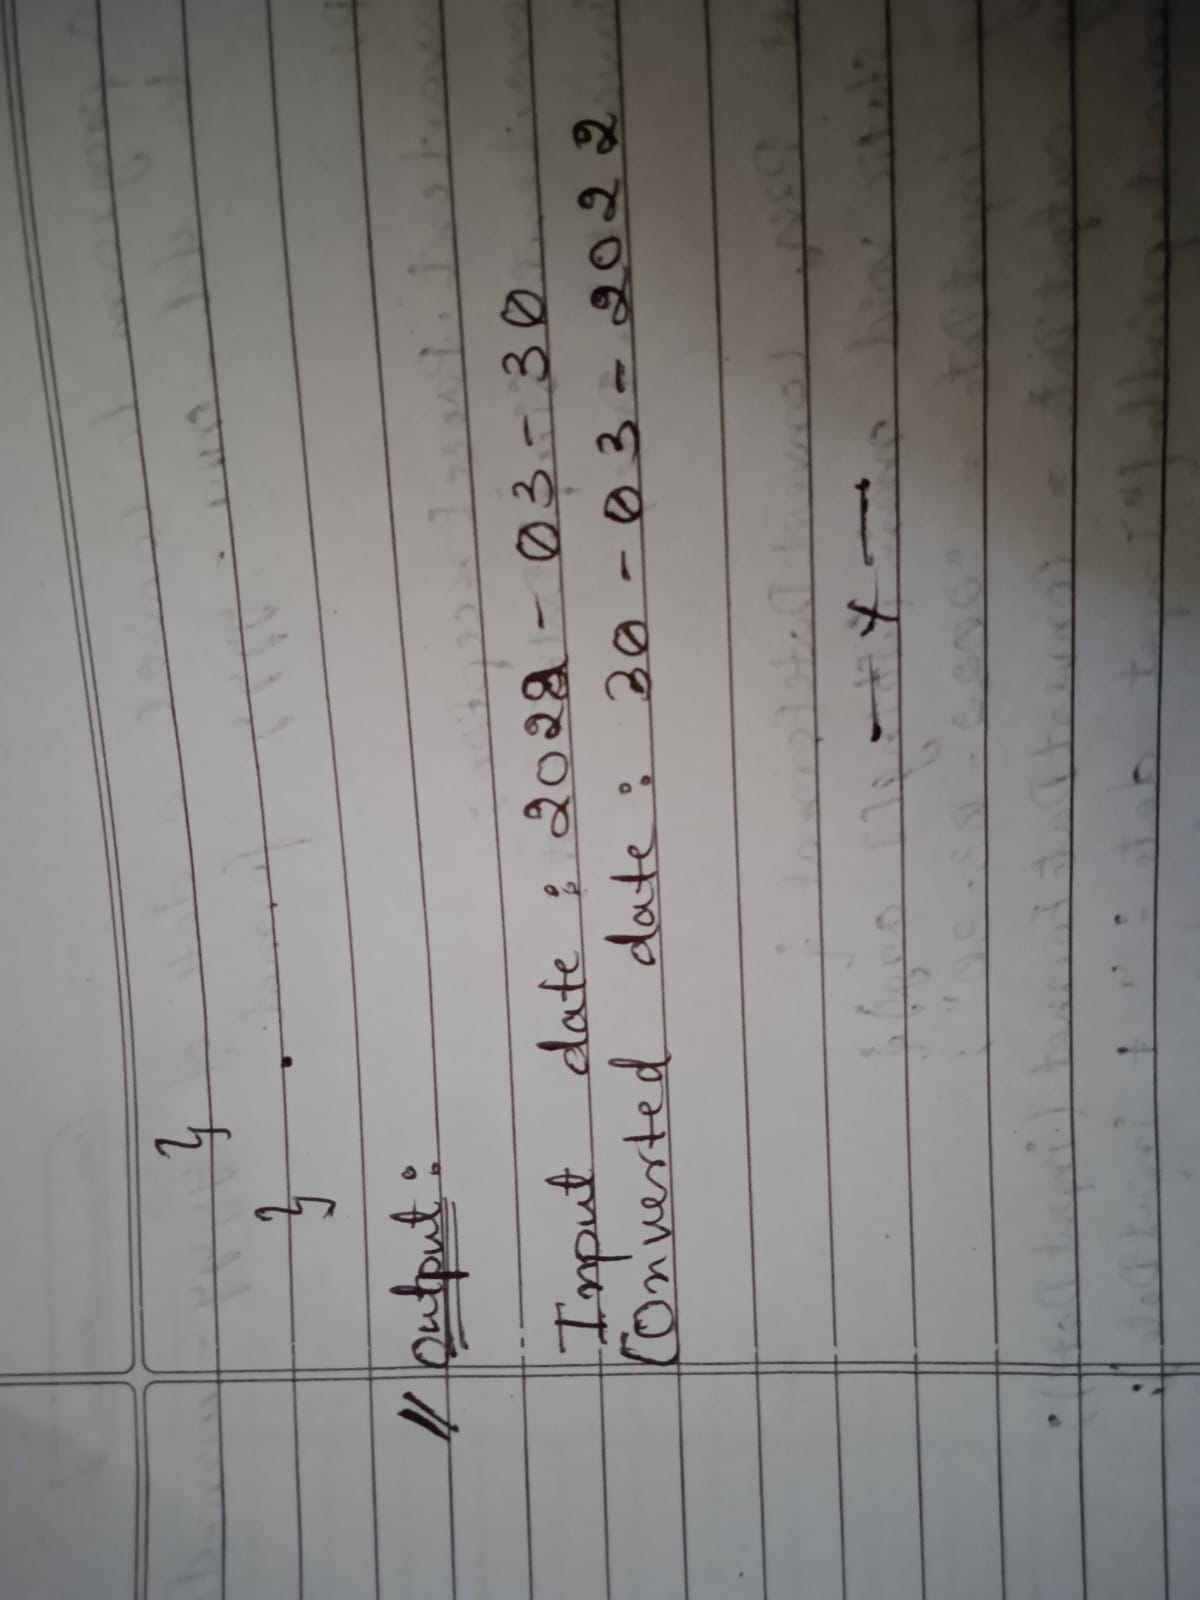 }
}
// Output :
Input date : 2022 - 03 - 30
Converted date : 30 - 03 - 2022
— x —